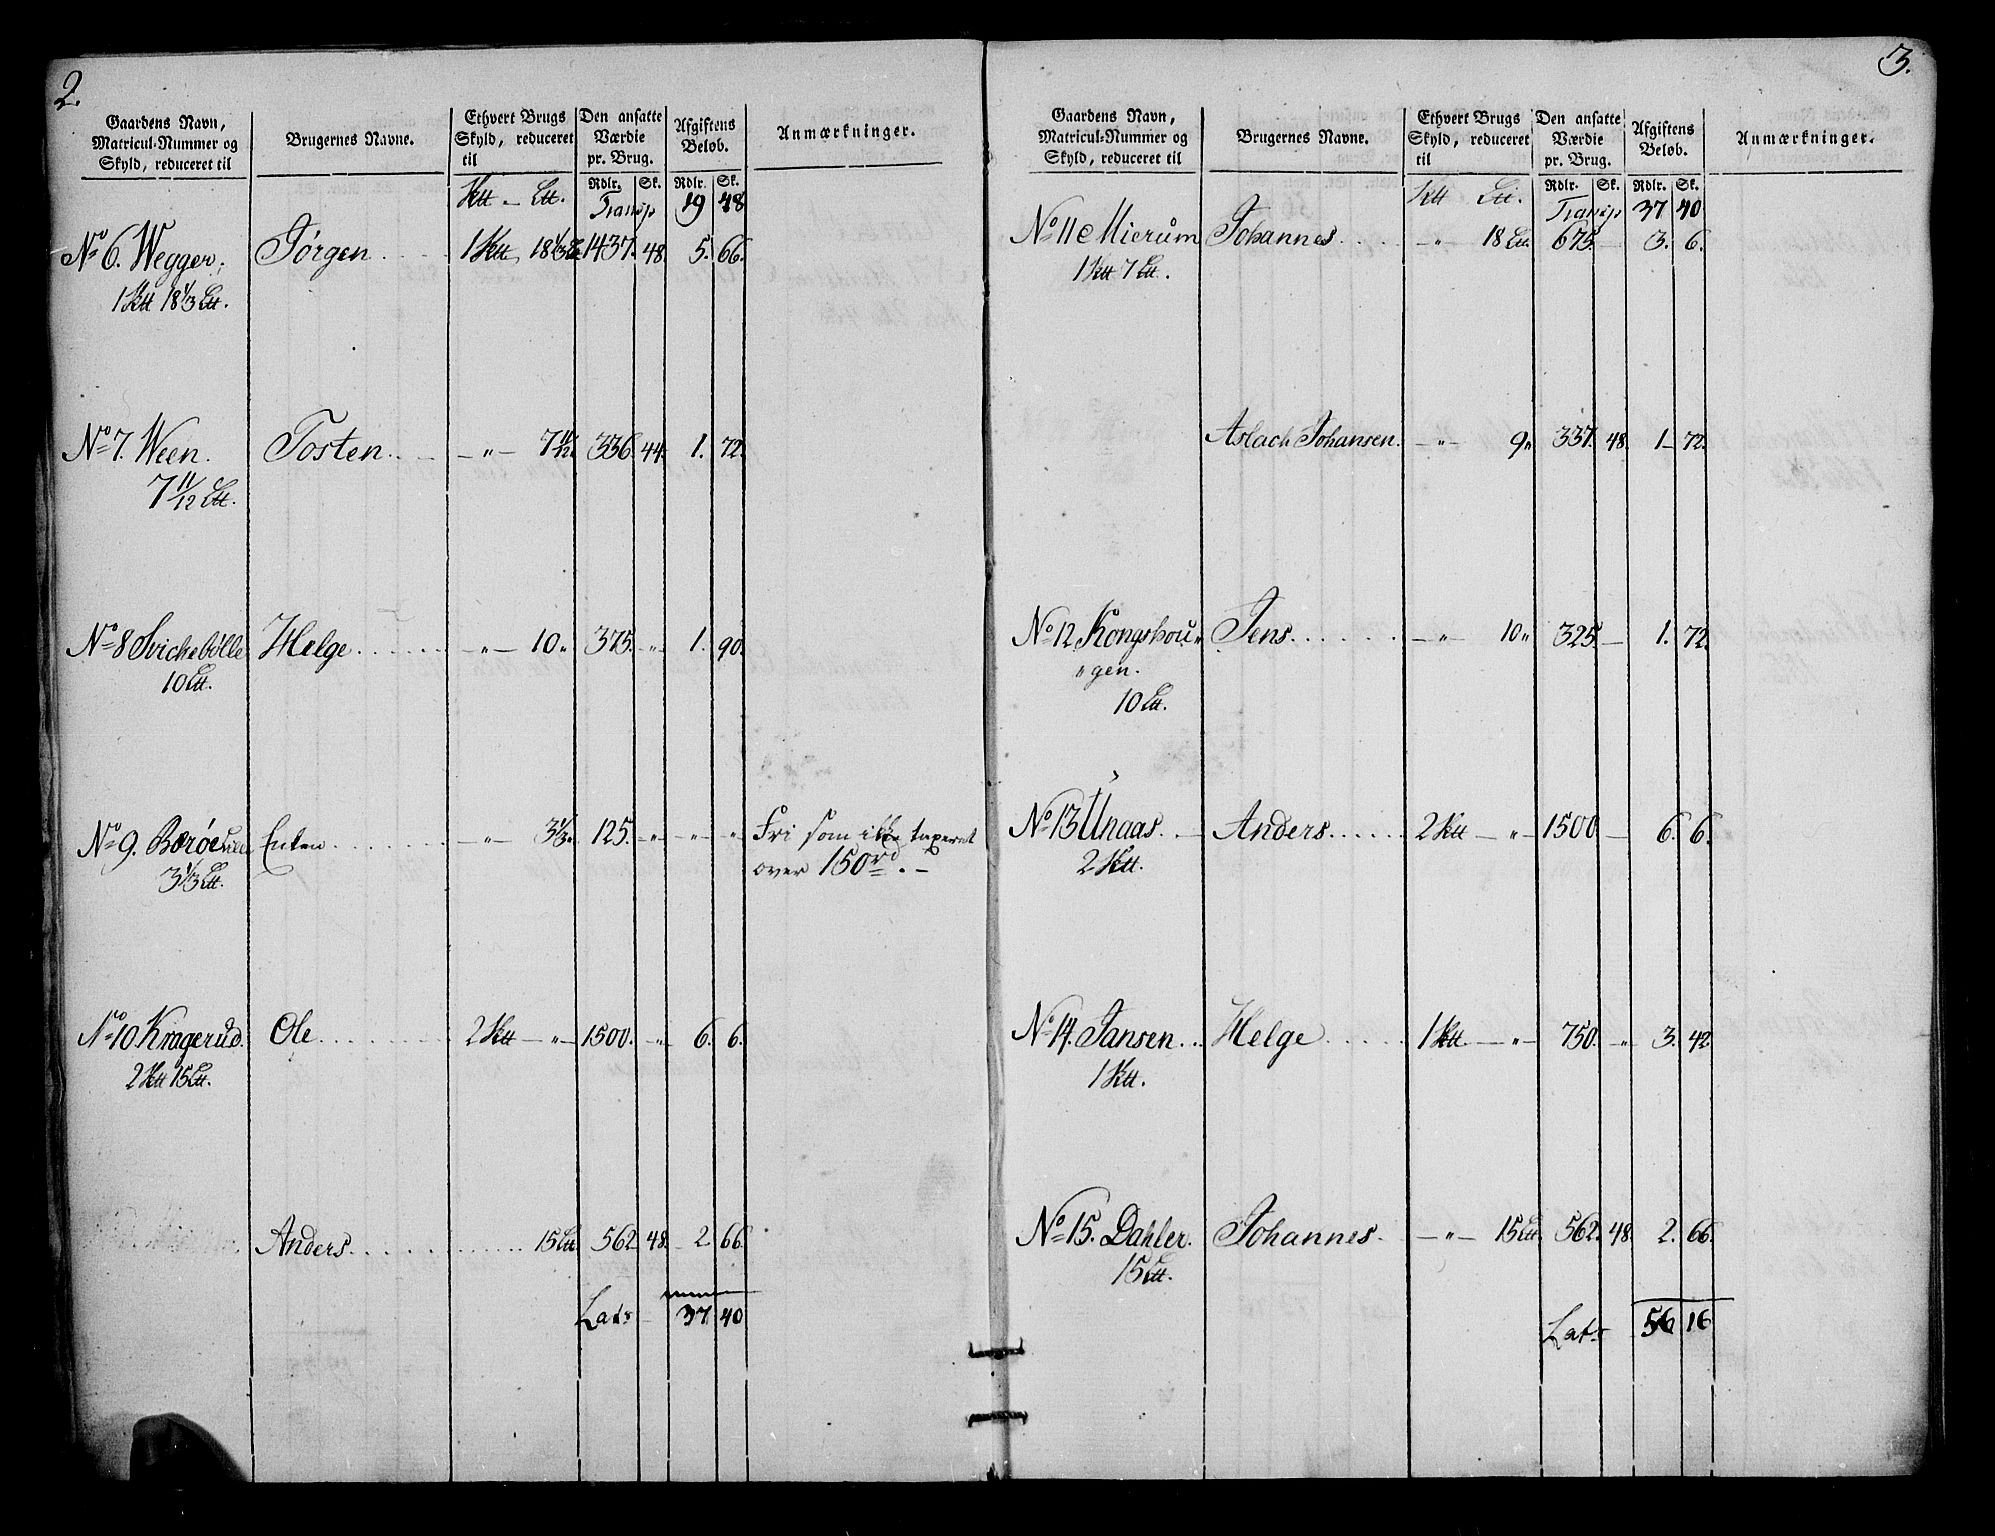 2.
Gaardens Navn, Matricul-Nummer og Skyld, reduceret til | Brugernes Navne. | Ethvert Brugs Skyld, reduceret til | Den ansatte Værdie pr. Brug. | Afgiftens Beløb. | Anmærkninger.
Rdlr. Sk. Rdlr. Sk.
Transp 19 48
No 6. Wegger, Jørgen 18 1/3 1437. 48. 5. 66.
18 1/3
No 7. Ween. Tosten 7 11/12 336. 44. 1. 72.
7 11/12
No 8 Svichebølle Helge 10 375. „ 1. 90.
10
No 9. Enten 3 1/3 125. „ „ „ Fri som ikke taxeret
3 1/3 over 150 rd. –
No 10 Kragerud. Ole 2 „ 1500. „ 6. 6.
2 15
Anders 15 562. 48. 2. 66.
Lats 37 40
3.
Gaardens Navn, Matricul-Nummer og Skyld, reduceret til | Brugernes Navne. | Ethvert Brugs Skyld, reduceret til | Den ansatte Værdie pr. Brug. | Afgiftens Beløb. | Anmærkninger.
Rdlr. Sk. Rdlr. Sk.
Transp 37 40
No 11 Mierum Johannes „ 18 675. 3. 6.
1 7
Aslach Johansen. „ 9 337. 48. 1 72.
No 12 Kongshou„ Jens „ 10 325. 1. 72.
„gen.
10
No 13 Unaas. Anders 2 „ 1500 6. 6.
2
No 14. Jansen Helge 1 „ 750. „ 3. 42.
1
No 15. Dahler. Johannes „ 15 562. 48. 2. 66.
15
Lats 56 16